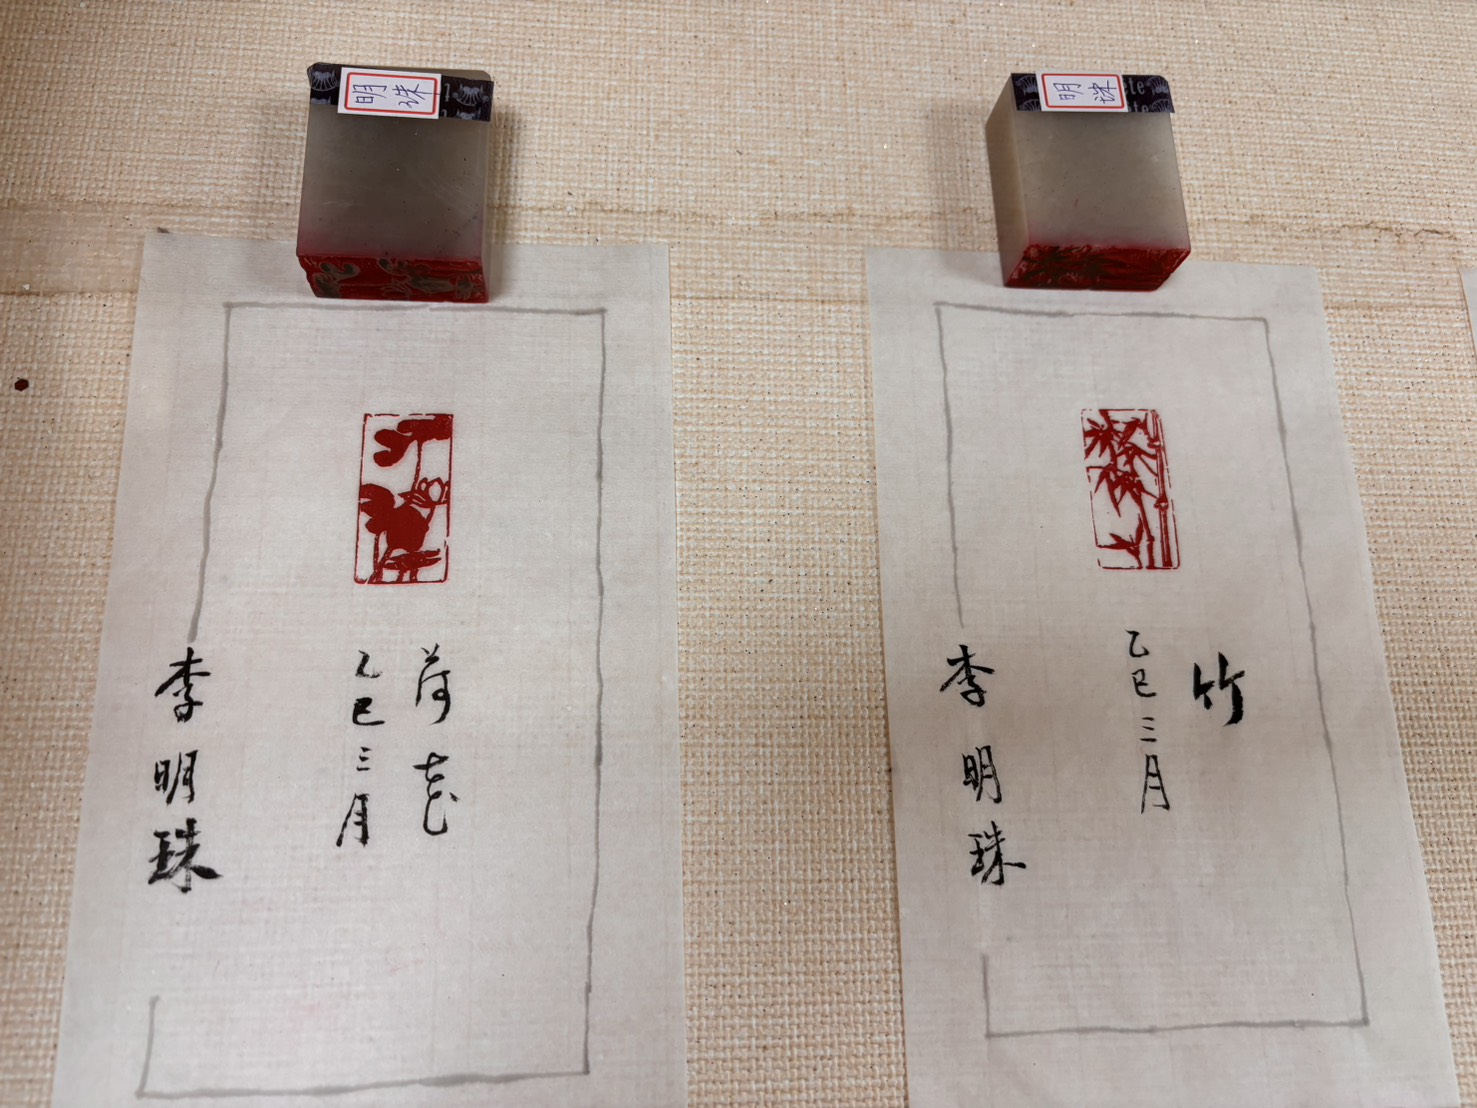 明珠
明珠
荷花
乙巳三月
李明珠
竹
乙巳三月
李明珠